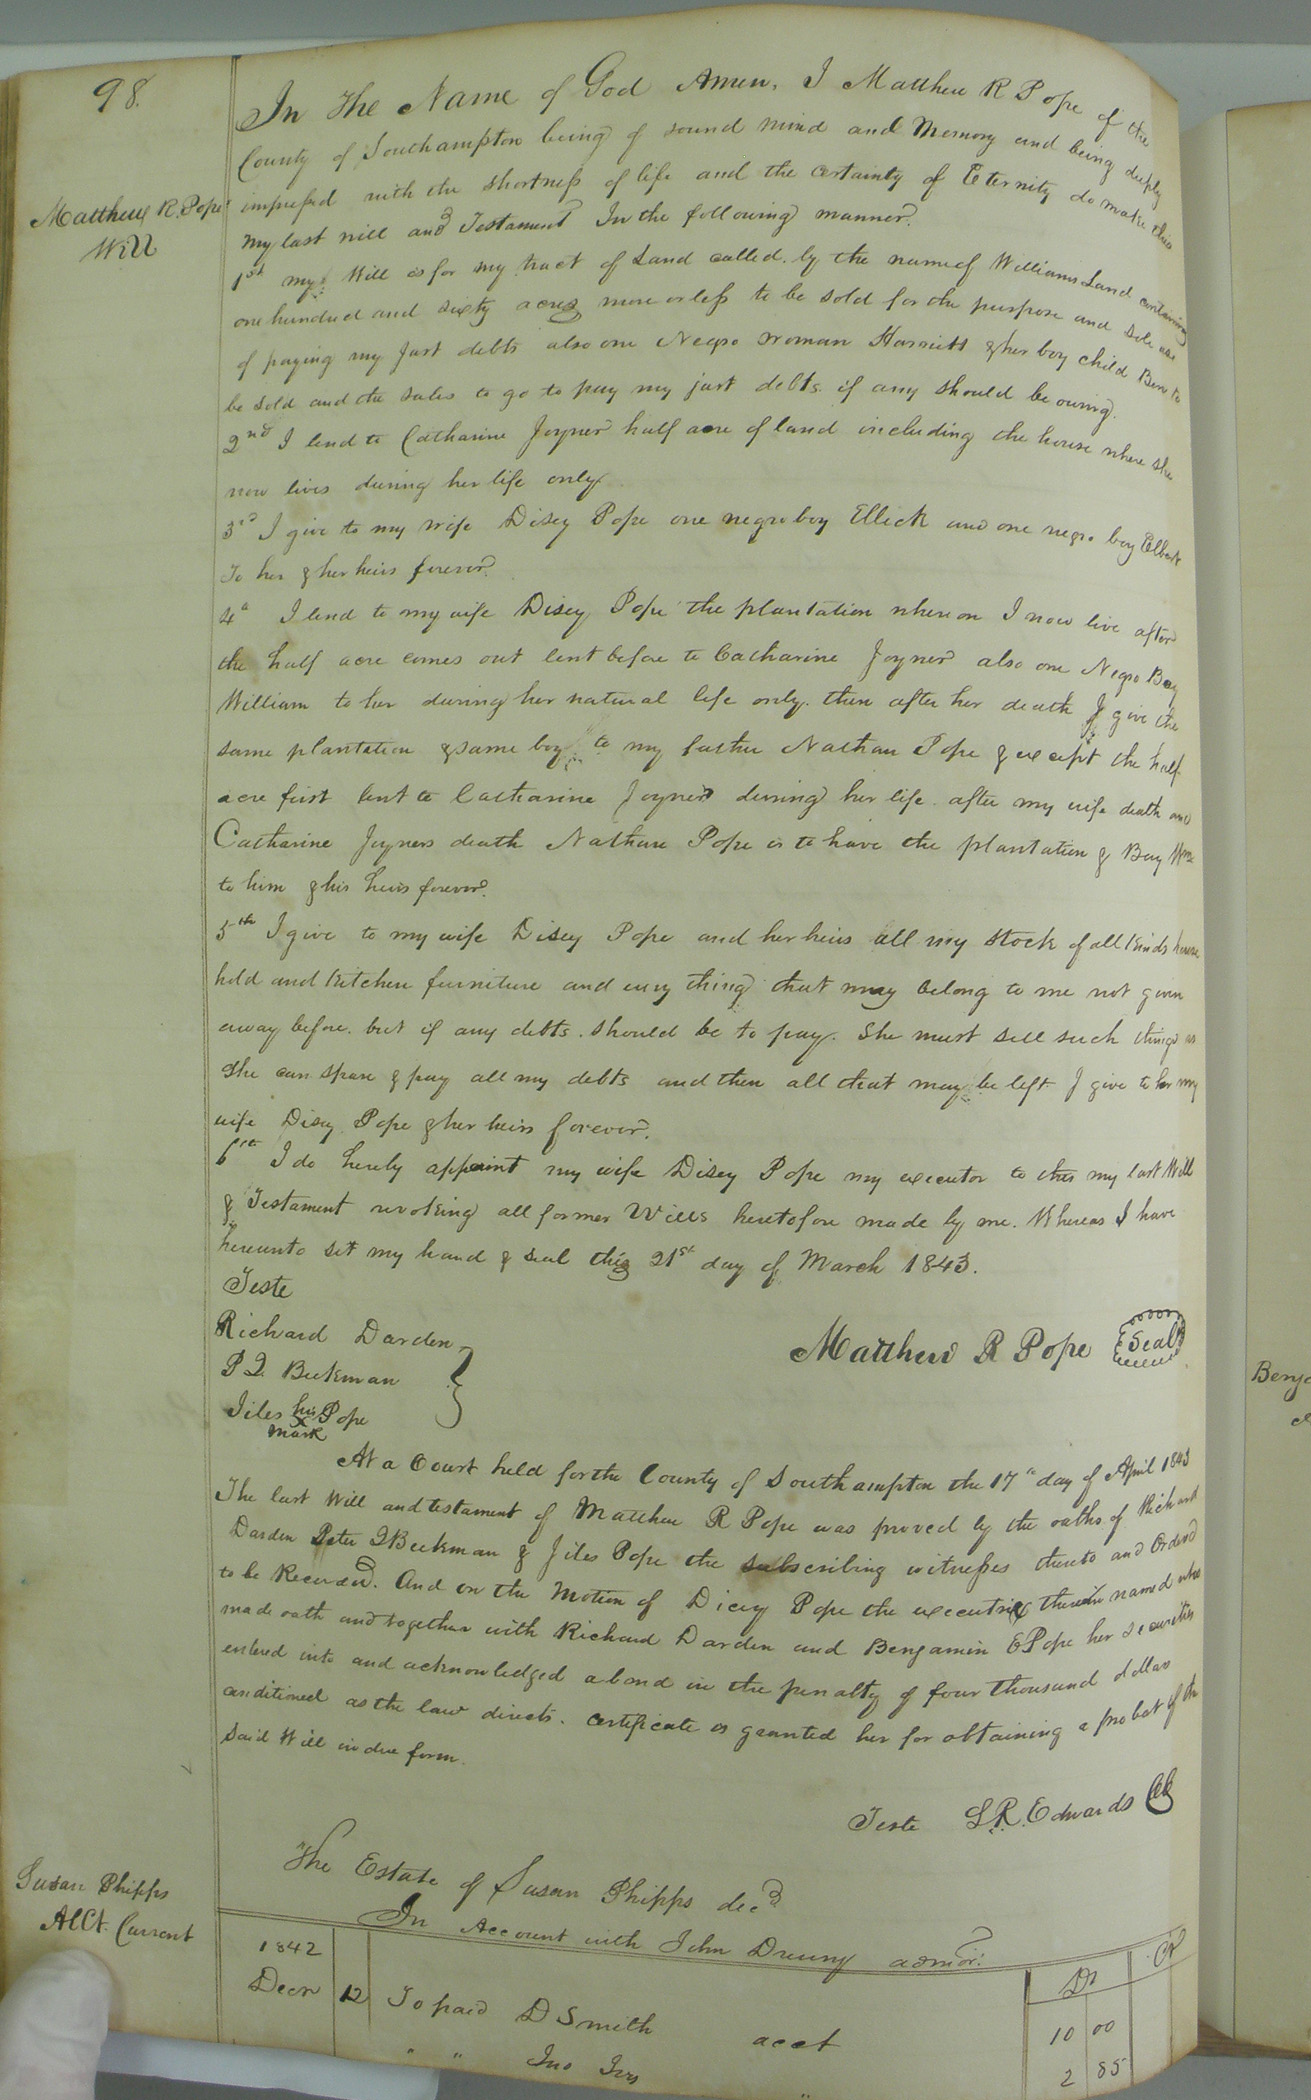 98.
Matthew R. Pope
Will
In the Name of God Amen, I Matthew R Pope of the
County of Southampton being of sound mind and Memory and being deeply
impressed with the shortness of life and the certainty of Eternity do make this
my last will and Testament In the following manner.
1st my Will is for my tract of Land called by the name of Williams Land containing
one hundred and sixty acres more or less to be sold for the purpose and sole use
of paying my Just debts also one Negro woman Harriett & her boy child Ben to
be sold and the sales to go to pay my just debts if any should be owing.
2nd I lend to Catharine Joyner half acre of land including the house where she
now lives during her life only.
3rd I give to my wife Disey Pope one negro boy Ellick and one negro boy Elbert
To her & her heirs forever.
4th I lend to my wife Disey Pope the plantation whereon I now live after
the half acre comes out lent before to Catharine Joyner also one Negro Boy
William to her during her natural life only. then after her death I give the
same plantation & same boy to my father Nathan Pope & except the half
acre first lent to Catharine Joyner during her life after my wife death and
Catharine Joyners death Nathan Pope is to have the plantation & Boy Wm
to him & his heirs forever.
5th I give to my wife Disey Pope and her heirs all my stock of all kinds house
hold and kitchen furniture and every thing that may belong to me not given
away before. but if any debts should be to pay. She must sell such things as
She can spare & pay all my debts and then all that may be left I give to her my
wife Disey Pope & her heirs forever.
6th I do hereby appoint my wife Disey Pope my executor to this my last Will
& Testament revoking all former Wills heretofore made by me. Whereas I have
hereunto set my hand & seal this 21st day of March 1843.
Teste
Richard Darden
P. Q. Beekman
Jiles his Pope
x
mark
Matthew R Pope Seal
At a Court held for the County of Southampton the 17th day of April 1843
The last Will and testament of Matthew R Pope was proved by the oaths of Richard
Darden Peter Q Beekman & Jiles Pope the subscribing witnesses thereto and Ordered
to be Recorded. And on the Motion of Dicey Pope the executrix therein named who
made oath and together with Richard Darden and Benjamin E Pope her securities
entered into and acknowledged a bond in the penalty of four thousand dollars
conditioned as the law directs. Certificate is granted her for obtaining a probat of the
said Will in due form.
Teste L. R. Edwards Clk
Susan Phipps
Acct. Current
The Estate of Susan Phipps decd
In Account with John Drewry admor:
Dr Cr
1842
Decr 12 To paid D Smith acct 10 00
" " Jno Ivy " 2 85
Benj